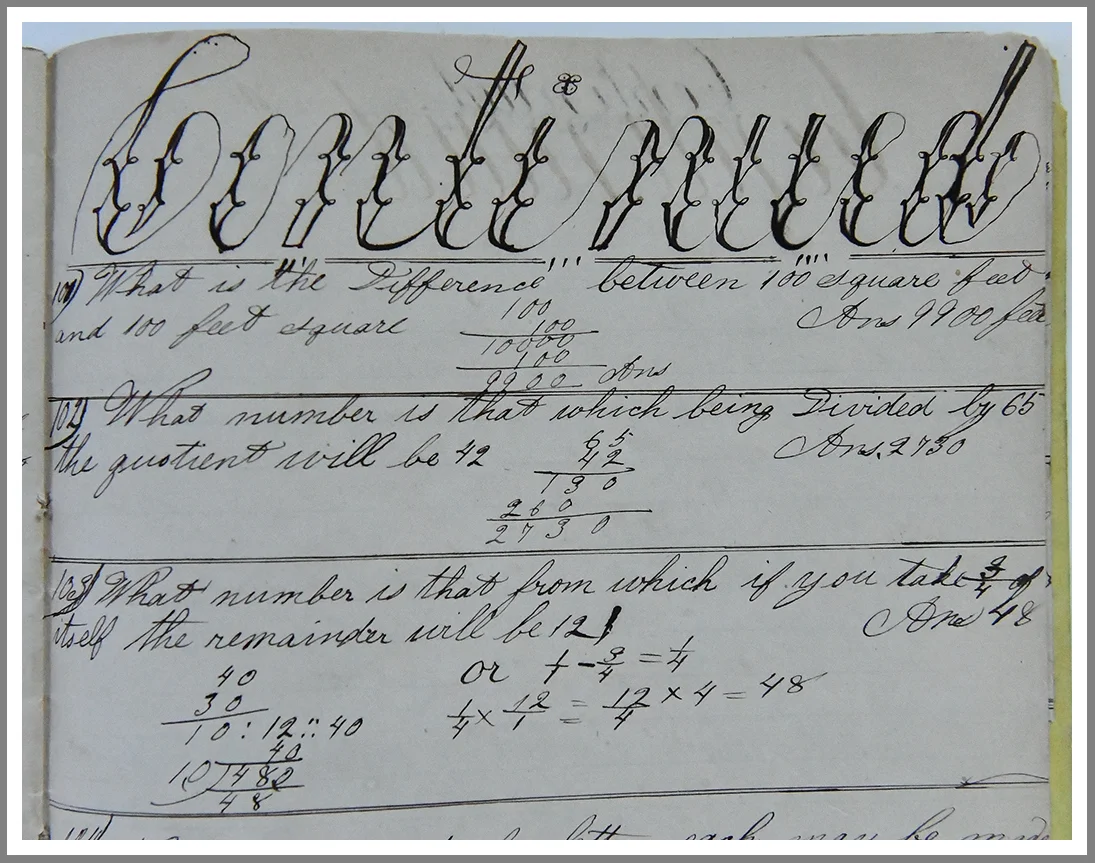 Continued
101) What is the Difference between 100 square feet
and 100 feet square Ans 9900 feet
100
100
10000
100
9900 Ans
102) What number is that which being Divided by 65
the quotient will be 42 Ans. 2730
65
42
130
260
2730
103) What number is that from which if you take 3/4 of
itself the remainder will be 12 Ans 48
40
30
10 : 12 :: 40
40
10 ) 480
48
or 1 - 3/4 = 1/4
1/4 × 12/1 = 12/4 × 4 = 48
each may be made